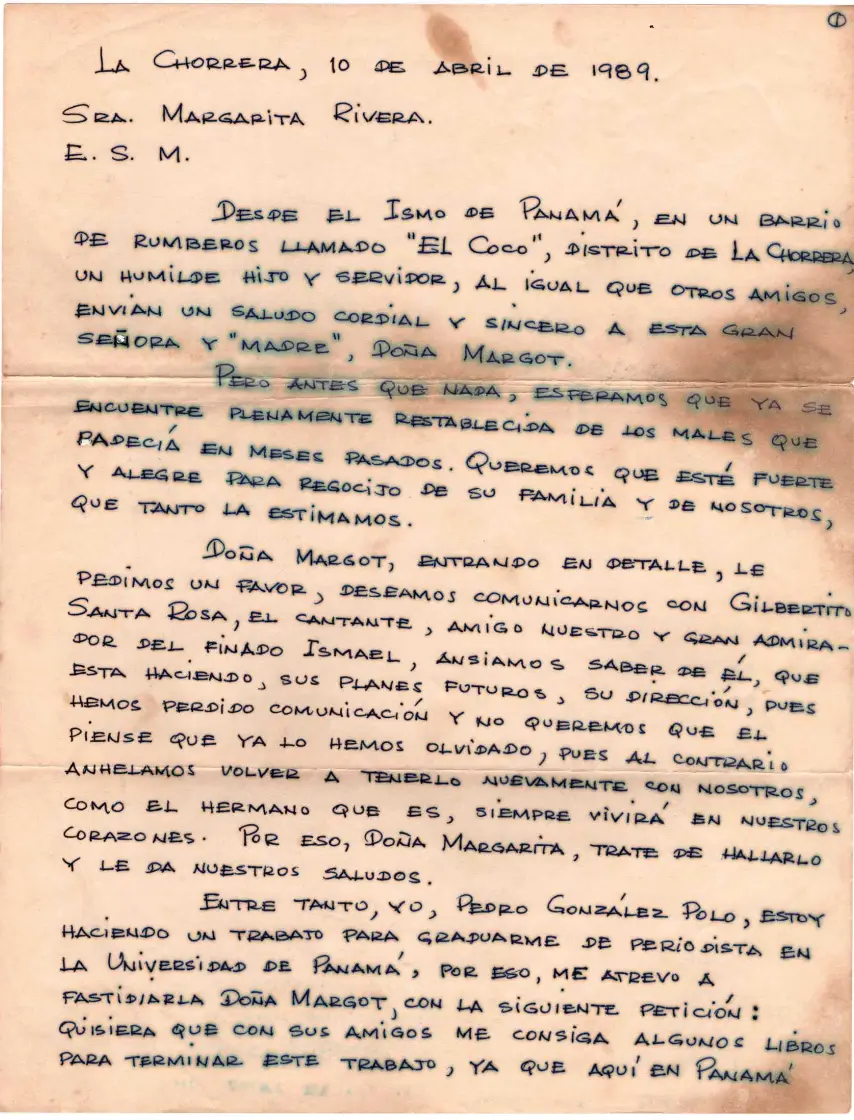 ①
La Chorrera, 10 de abril de 1989.
Sra. Margarita Rivera.
E. S. M.
Desde el Ismo de Panamá, en un barrio
de rumberos llamado "El Coco", distrito de La Chorrera,
un humilde hijo y servidor, al igual que otros amigos,
envían un saludo cordial y sincero a esta gran
señora y "madre", Doña Margot.
Pero antes que nada, esperamos que ya se
encuentre plenamente restablecida de los males que
padecía en meses pasados. Queremos que esté fuerte
y alegre para regocijo de su familia y de nosotros,
que tanto la estimamos.
Doña Margot, entrando en detalle, le
pedimos un favor, deseamos comunicarnos con Gilbertito
Santa Rosa, el cantante, amigo nuestro y gran admira-
dor del finado Ismael, ansiamos saber de él, que
esta haciendo, sus planes futuros, su dirección, pues
hemos perdido comunicación y no queremos que el
piense que ya lo hemos olvidado, pues al contrario
anhelamos volver a tenerlo nuevamente con nosotros,
como el hermano que es, siempre vivirá en nuestros
corazones. Por eso, Doña Margarita, trate de hallarlo
y le da nuestros saludos.
Entre tanto, yo, Pedro González Polo, estoy
haciendo un trabajo para graduarme de periodista en
la Universidad de Panamá, por eso, me atrevo a
fastidiarla Doña Margot, con la siguiente petición:
Quisiera que con sus amigos me consiga algunos libros
para terminar este trabajo, ya que aquí en Panamá